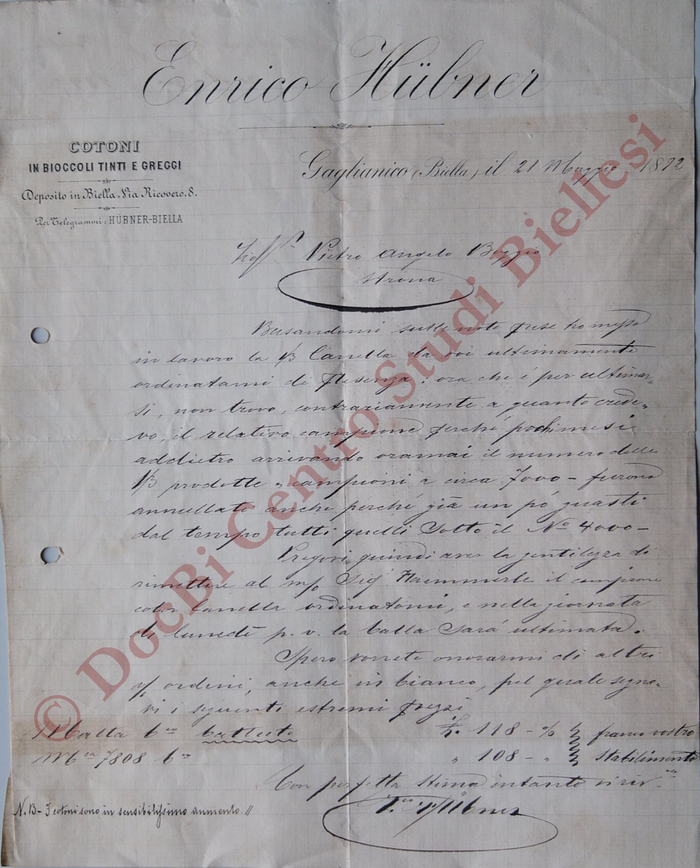 Enrico Hübner
COTONI
IN BIOCCOLI TINTI E GREGGI
Deposito in Biella, Via Ricovero, 8.
Per Telegrammi: HÜBNER-BIELLA
Gaglianico (Biella) il 21 Maggio 1892
Pietro Angelo Boggio
Strona
Basandomi sulle note prese ho messo
in lavoro la Canella da voi ultimamente
ordinatami di : ora che è per ultimar-
si, non trovo, contrariamente a quanto crede-
vo, il relativo campione perché pochi mesi
addietro arrivando oramai il numero delle
prodotte campioni a circa 7000 - furono
annullati anche perché già un pó guasti
dal tempo tutti quelli sotto il No 4000 -
Pregovi quindi aver la gentilezza di
rimettere al Sigr Haemmerle il campione
color Canella ordinatomi, e nella giornata
di lunedì p. v. la balla sarà ultimata.
Spero vorrete onorarmi di altri
ordini, anche in bianco, pel quale segno-
vi i seguenti estremi prezzi
118 - % franco vostro
7808 " 108 - " stabilimento
Con perfetta stima intanto
Hübner
N. B - I cotoni sono in sensibilissimo aumento. //
© DocBi Centro Studi Biellesi